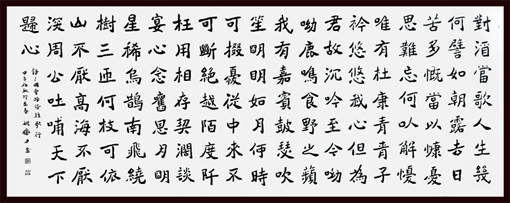 對酒當歌人生幾
何譬如朝露去日
苦多慨當以慷憂
思難忘何以解憂
唯有杜康青青子
衿悠悠我心但為
君故沉吟至今呦
呦鹿鳴食野之蘋
我有嘉賓鼓瑟吹
笙明明如月何時
可掇憂從中來不
可斷絕越陌度阡
枉用相存契闊談
宴心念舊恩月明
星稀烏鵲南飛繞
樹三匝何枝可依
山不厭高海不厭
深周公吐哺天下
歸心